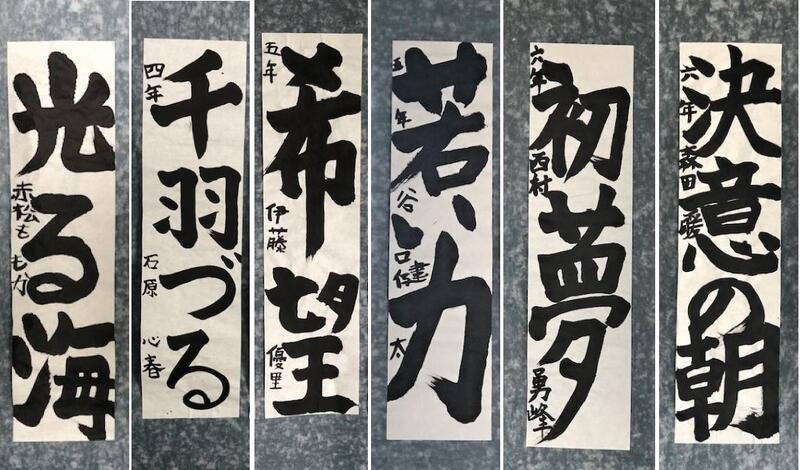 光る海
赤松ももか
千羽づる
四年 石原 心春
希望
五年 伊藤 優里
若い力
五年 谷口健太
初夢
六年 西村 勇峰
決意の朝
六年 森田 暖